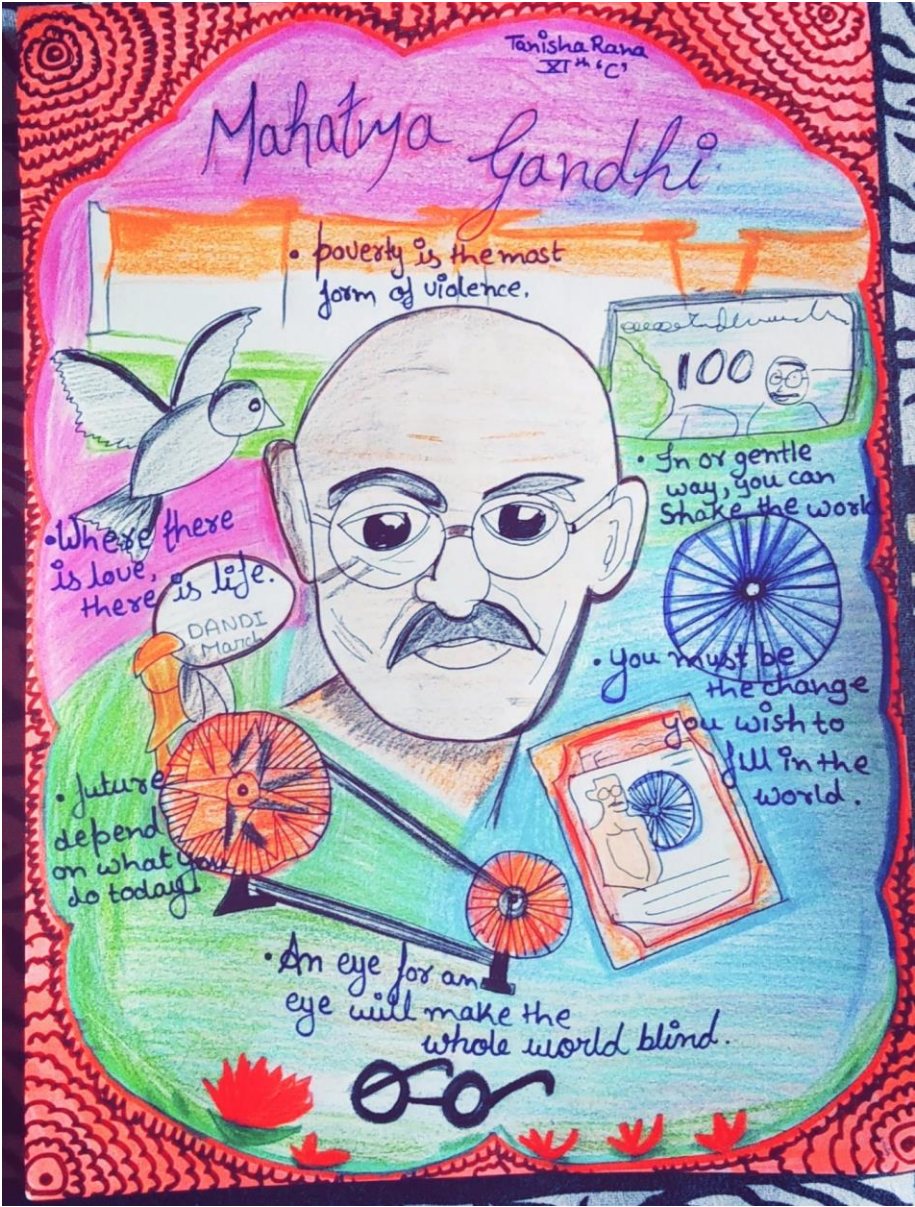 Tanisha Rana
XIth 'C'
Mahatma Gandhi
• poverty is the most
form of violence.
100
• In or gentle
way, you can
Shake the world
• Where there
is love,
there is life.
DANDI
March
• You must be
the change
you wish to
fill in the
world.
• future
depend
on what you
do today!
• An eye for an
eye will make the
whole world blind.